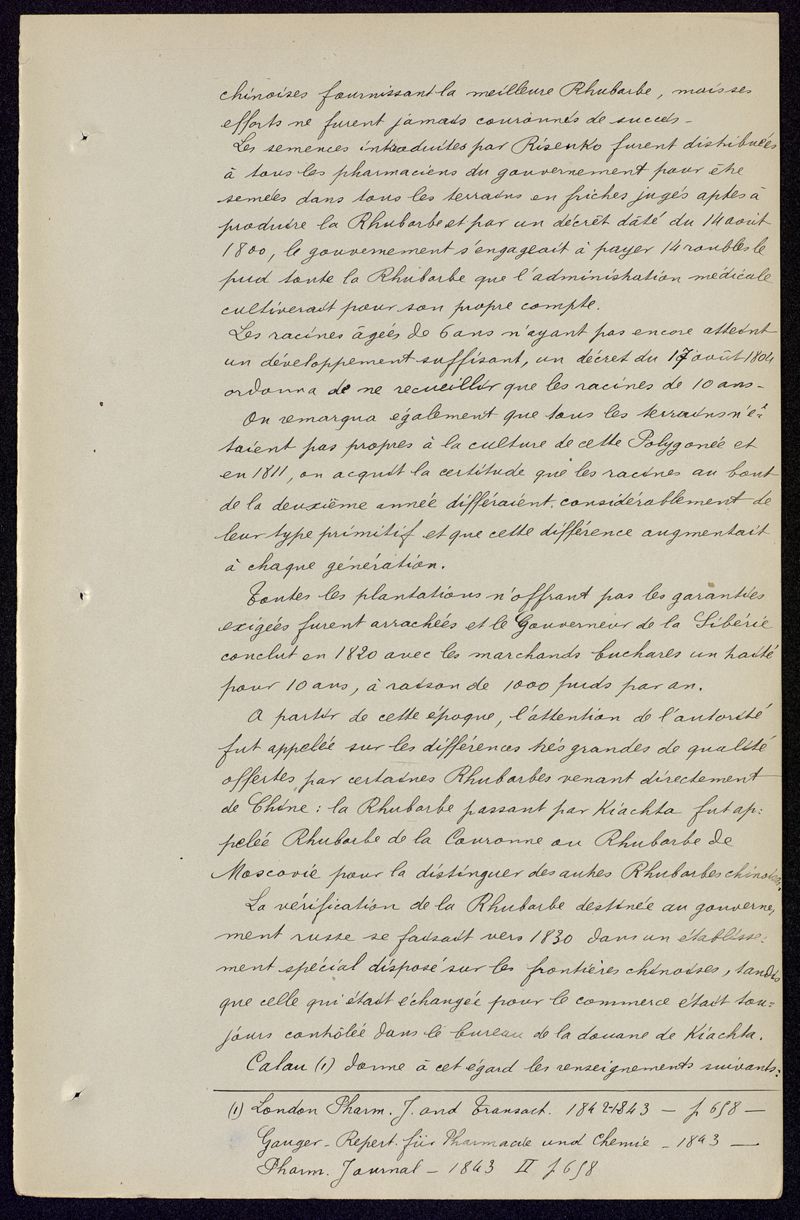 chinoises fournissant la meilleure Rhubarbe, mais ses
efforts ne furent jamais couronnés de succès -
Les semences introduites par Risenko furent distribuées
à tous les pharmaciens du gouvernement pour être
semées dans tous les terrains en friches jugés aptes à
produire la Rhubarbe et par un décrêt dâté du 14 août
1800, le gouvernement s'engageait à payer 14 roubles le
pud toute la Rhubarbe que l'administration médicale
cultiverait pour son propre compte.
Les racines âgées de 6 ans n'ayant pas encore atteint
un développement suffisant, un décret du 17 août 1804
ordonna de ne recueillir que les racines de 10 ans -
On remarqua également que tous les terrains n'é-
taient pas propres à la culture de cette Polygonée et
en 1811, on acquit la certitude que les racines au bout
de la deuxième année différaient considérablement de
leur type primitif et que cette différence augmentait
à chaque génération.
Toutes les plantations n'offrant pas les garanties
exigées furent arrachées et le Gouverneur de la Sibérie
conclut en 1820 avec les marchands buchares un traité
pour 10 ans, à raison de 1000 puds par an.
A partir de cette époque, l'attention de l'autorité
fut appelée sur les différences très grandes de qualité
offertes par certaines Rhubarbes venant directement
de Chine : la Rhubarbe passant par Kiachta fut ap:
pelée Rhubarbe de la Couronne ou Rhubarbe de
Moscovie pour la distinguer des autres Rhubarbes chinoises.
La vérification de la Rhubarbe destinée au gouverne,
ment russe se faisait vers 1830 dans un établisse:
ment spécial disposé sur les frontières chinoises, tandis
que celle qui était échangée pour le commerce était tou=
jours contrôlée dans le bureau de la douane de Kiachta.
Calau (1) donne à cet égard les renseignements suivants:
(1) London Pharm. J. and Transact. 1842-1843 — p 658 —
Gauger - Repert. für Pharmacie und Chemie - 1843 —
Pharm. Journal - 1843 II p 658